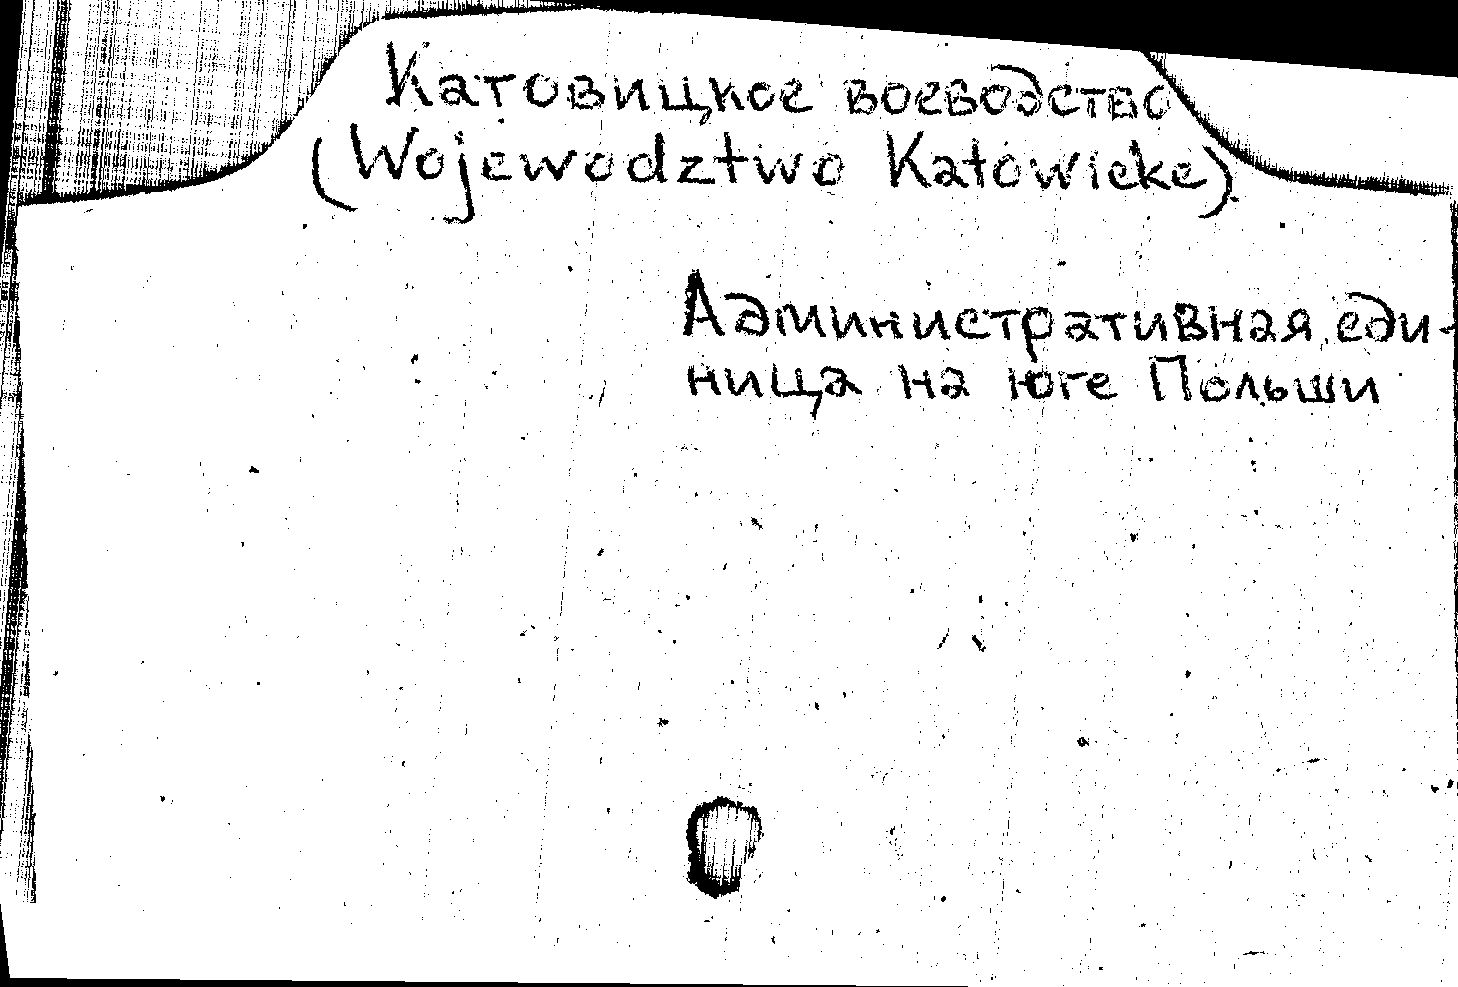 Катовицкое воеводство
(Wojewodztwo Katowicke)
Административная еди-
ница на юге Польши